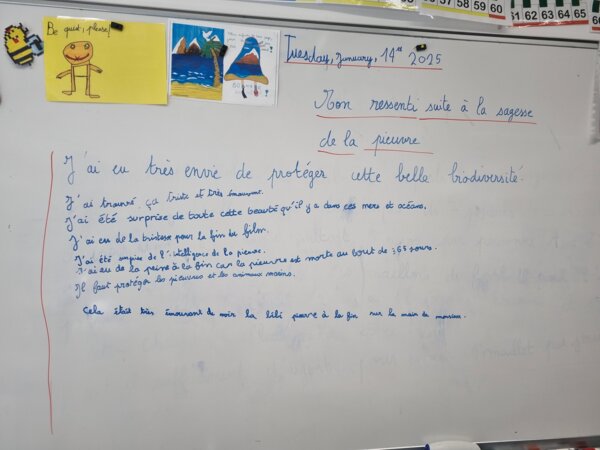 51 52 53 54 55 56 57 58 59 60
Be quiet, please!
Tuesday, January, 14st 2025
Mon ressenti suite à la sagesse
de la pieuvre
J'ai eu très envie de protéger cette belle biodiversité.
J'ai trouvé ça triste et très émouvant.
J'ai été surprise de toute cette beauté qu'il y a dans ces mers et océans.
J'ai eu de la tristesse pour la fin du film.
J'ai été surprise de l'intelligence de la pieuvre.
J'ai eu de la peine à la fin car la pieuvre est morte au bout de 365 jours.
Il faut protéger les pieuvres et les animaux marins.
Cela était très émouvant de voir la bébé pieuvre à la fin sur la main du monsieur.